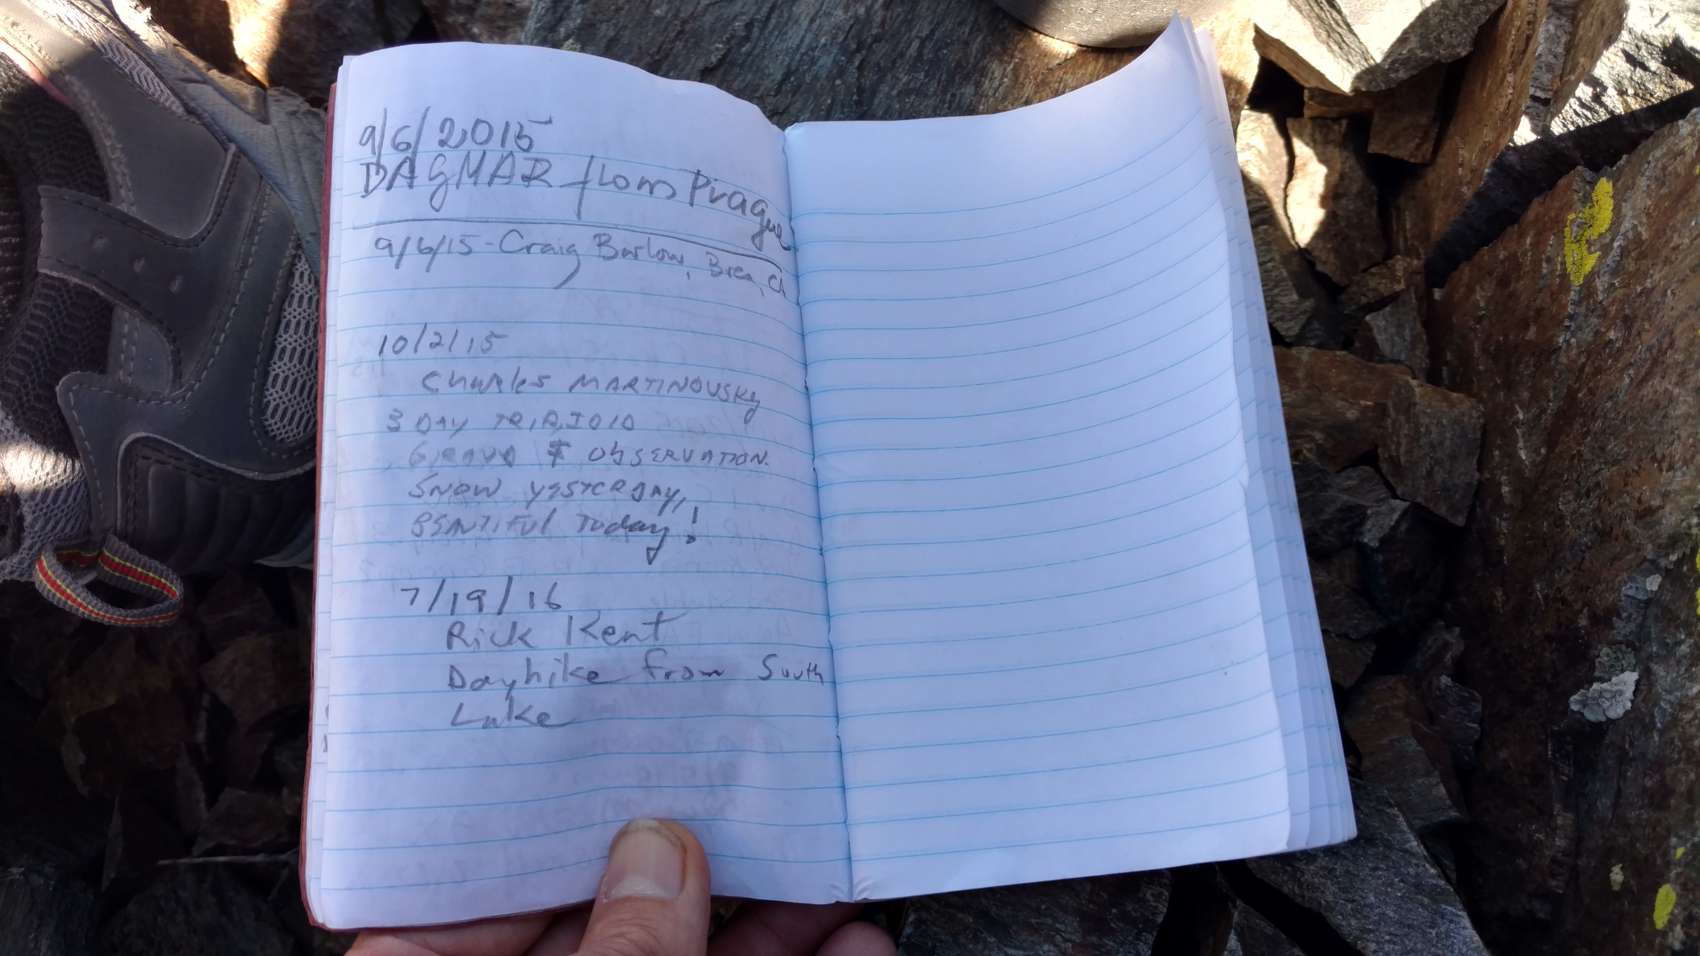 9/6/2015
DAGMAR from Prague
9/6/15 - Craig Barlow, Brea, CA
10/2/15
Charles MARTINOVSKY
3 DAY
& ObSERVATION.
SNOW YESTERDAY,
BEAUTIFUl TODAy!
7/19/16
Rick Kent
Dayhike from South
Lake